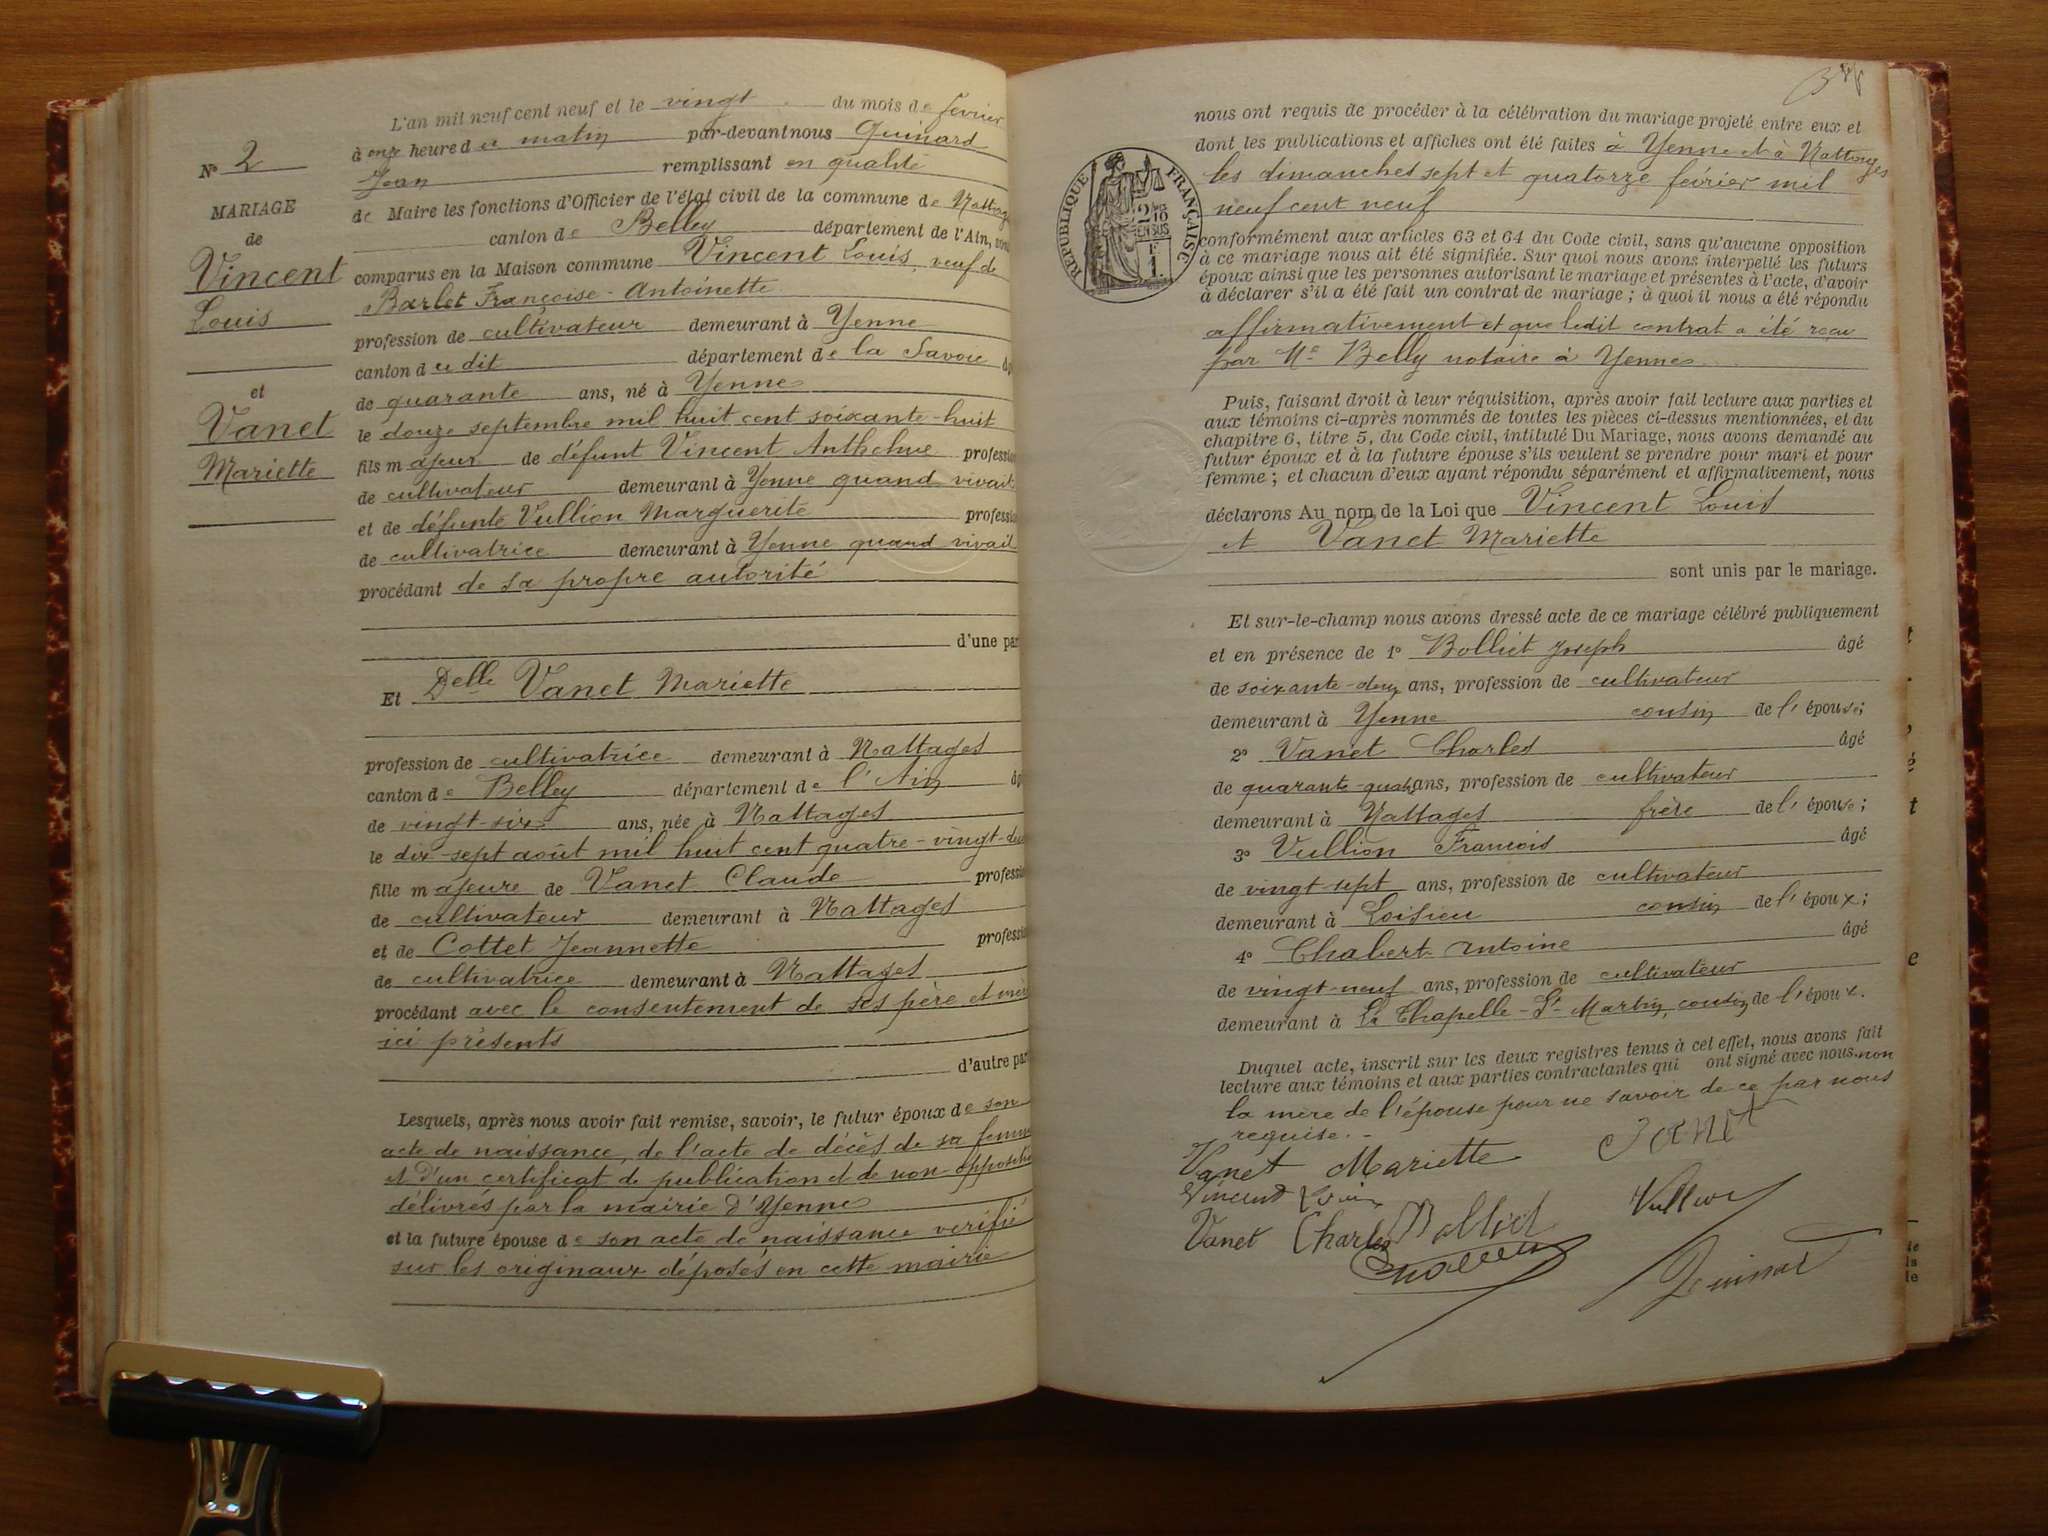 N° 2
MARIAGE
de
Vincent
Louis
et
Vanet
Mariette
L'an mil neuf cent neuf et le vingt du mois de février
à onze heures du matin par-devant nous Guinard
Jean remplissant en qualité
de Maire les fonctions d'Officier de l'état civil de la commune de Nattages
canton de Belley département de l'Ain, sont
comparus en la Maison commune Vincent Louis, veuf de
Barlet Françoise-Antoinette
profession de cultivateur demeurant à Yenne
canton du dit département de la Savoie
de quarante ans, né à Yenne
le douze septembre mil huit cent soixante-huit
fils majeur de défunt Vincent Anthelme profession
de cultivateur demeurant à Yenne quand vivait
et de défunte Vullion Marguerite profession
de cultivatrice demeurant à Yenne quand vivait
procédant de sa propre autorité
d'une par
Et Delle Vanet Mariette
profession de cultivatrice demeurant à Nattages
canton de Belley département de l'Ain
de vingt-six ans, née à Nattages
le dix-sept août mil huit cent quatre-vingt-deux
fille majeure de Vanet Claude profession
de cultivateur demeurant à Nattages
et de Cottet Jeannette profession
de cultivatrice demeurant à Nattages
procédant avec le consentement de ses père et mère
ici présents
d'autre par
Lesquels, après nous avoir fait remise, savoir, le futur époux de son
acte de naissance, de l'acte de décès de sa femme
et d'un certificat de publication et de non-opposition
délivrés par la mairie d'Yenne
et la future épouse de son acte de naissance verifié
sur les originaux déposés en cette mairie
nous ont requis de procéder à la célébration du mariage projeté entre eux et
dont les publications et affiches ont été faites à Yenne et à Nattages
les dimanches sept et quatorze février mil
neuf cent neuf
RÉPUBLIQUE FRANÇAISE
conformément aux articles 63 et 64 du Code civil, sans qu'aucune opposition
à ce mariage nous ait été signifiée. Sur quoi nous avons interpellé les futurs
époux ainsi que les personnes autorisant le mariage et présentes à l'acte, d'avoir
à déclarer s'il a été fait un contrat de mariage ; à quoi il nous a été répondu
affirmativement et que ledit contrat a été reçu
par Me Belly notaire à Yenne
Puis, faisant droit à leur réquisition, après avoir fait lecture aux parties et
aux témoins ci-après nommés de toutes les pièces ci-dessus mentionnées, et du
chapitre 6, titre 5, du Code civil, intitulé Du Mariage, nous avons demandé au
futur époux et à la future épouse s'ils veulent se prendre pour mari et pour
femme ; et chacun d'eux ayant répondu séparément et affirmativement, nous
déclarons Au nom de la Loi que Vincent Louis
et Vanet Mariette
sont unis par le mariage.
Et sur-le-champ nous avons dressé acte de ce mariage célébré publiquement
et en présence de 1° Bolliet Joseph âgé
de soixante-deux ans, profession de cultivateur
demeurant à Yenne cousin de l'épouse;
2° Vanet Charles âgé
de quarante-quatre ans, profession de cultivateur
demeurant à Nattages frère de l'épouse;
3° Vullion François âgé
de vingt-sept ans, profession de cultivateur
demeurant à Loisieu cousin de l'époux;
4° Chabert Antoine âgé
de vingt-neuf ans, profession de cultivateur
demeurant à La Chapelle-St Martin, cousin de l'époux.
Duquel acte, inscrit sur les deux registres tenus à cet effet, nous avons fait
lecture aux témoins et aux parties contractantes qui ont signé avec nous, non
la mère de l'épouse pour ne savoir de ce par nous
requise.
Vanet Mariette
Vincent Louis
Vanet Charles Bolliet Vullion
Guinard